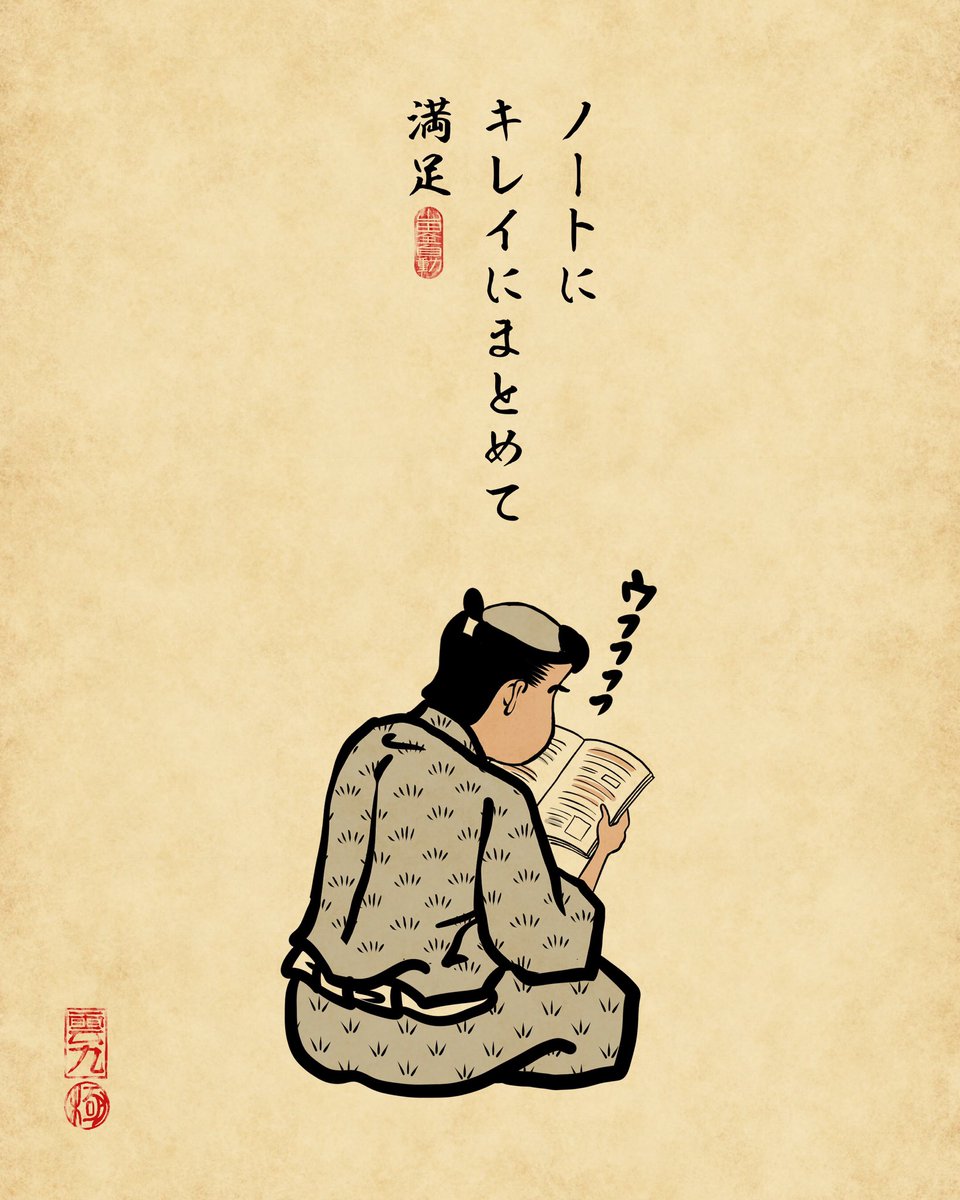 ノートに
キレイにまとめて
満足
ウフフフフ